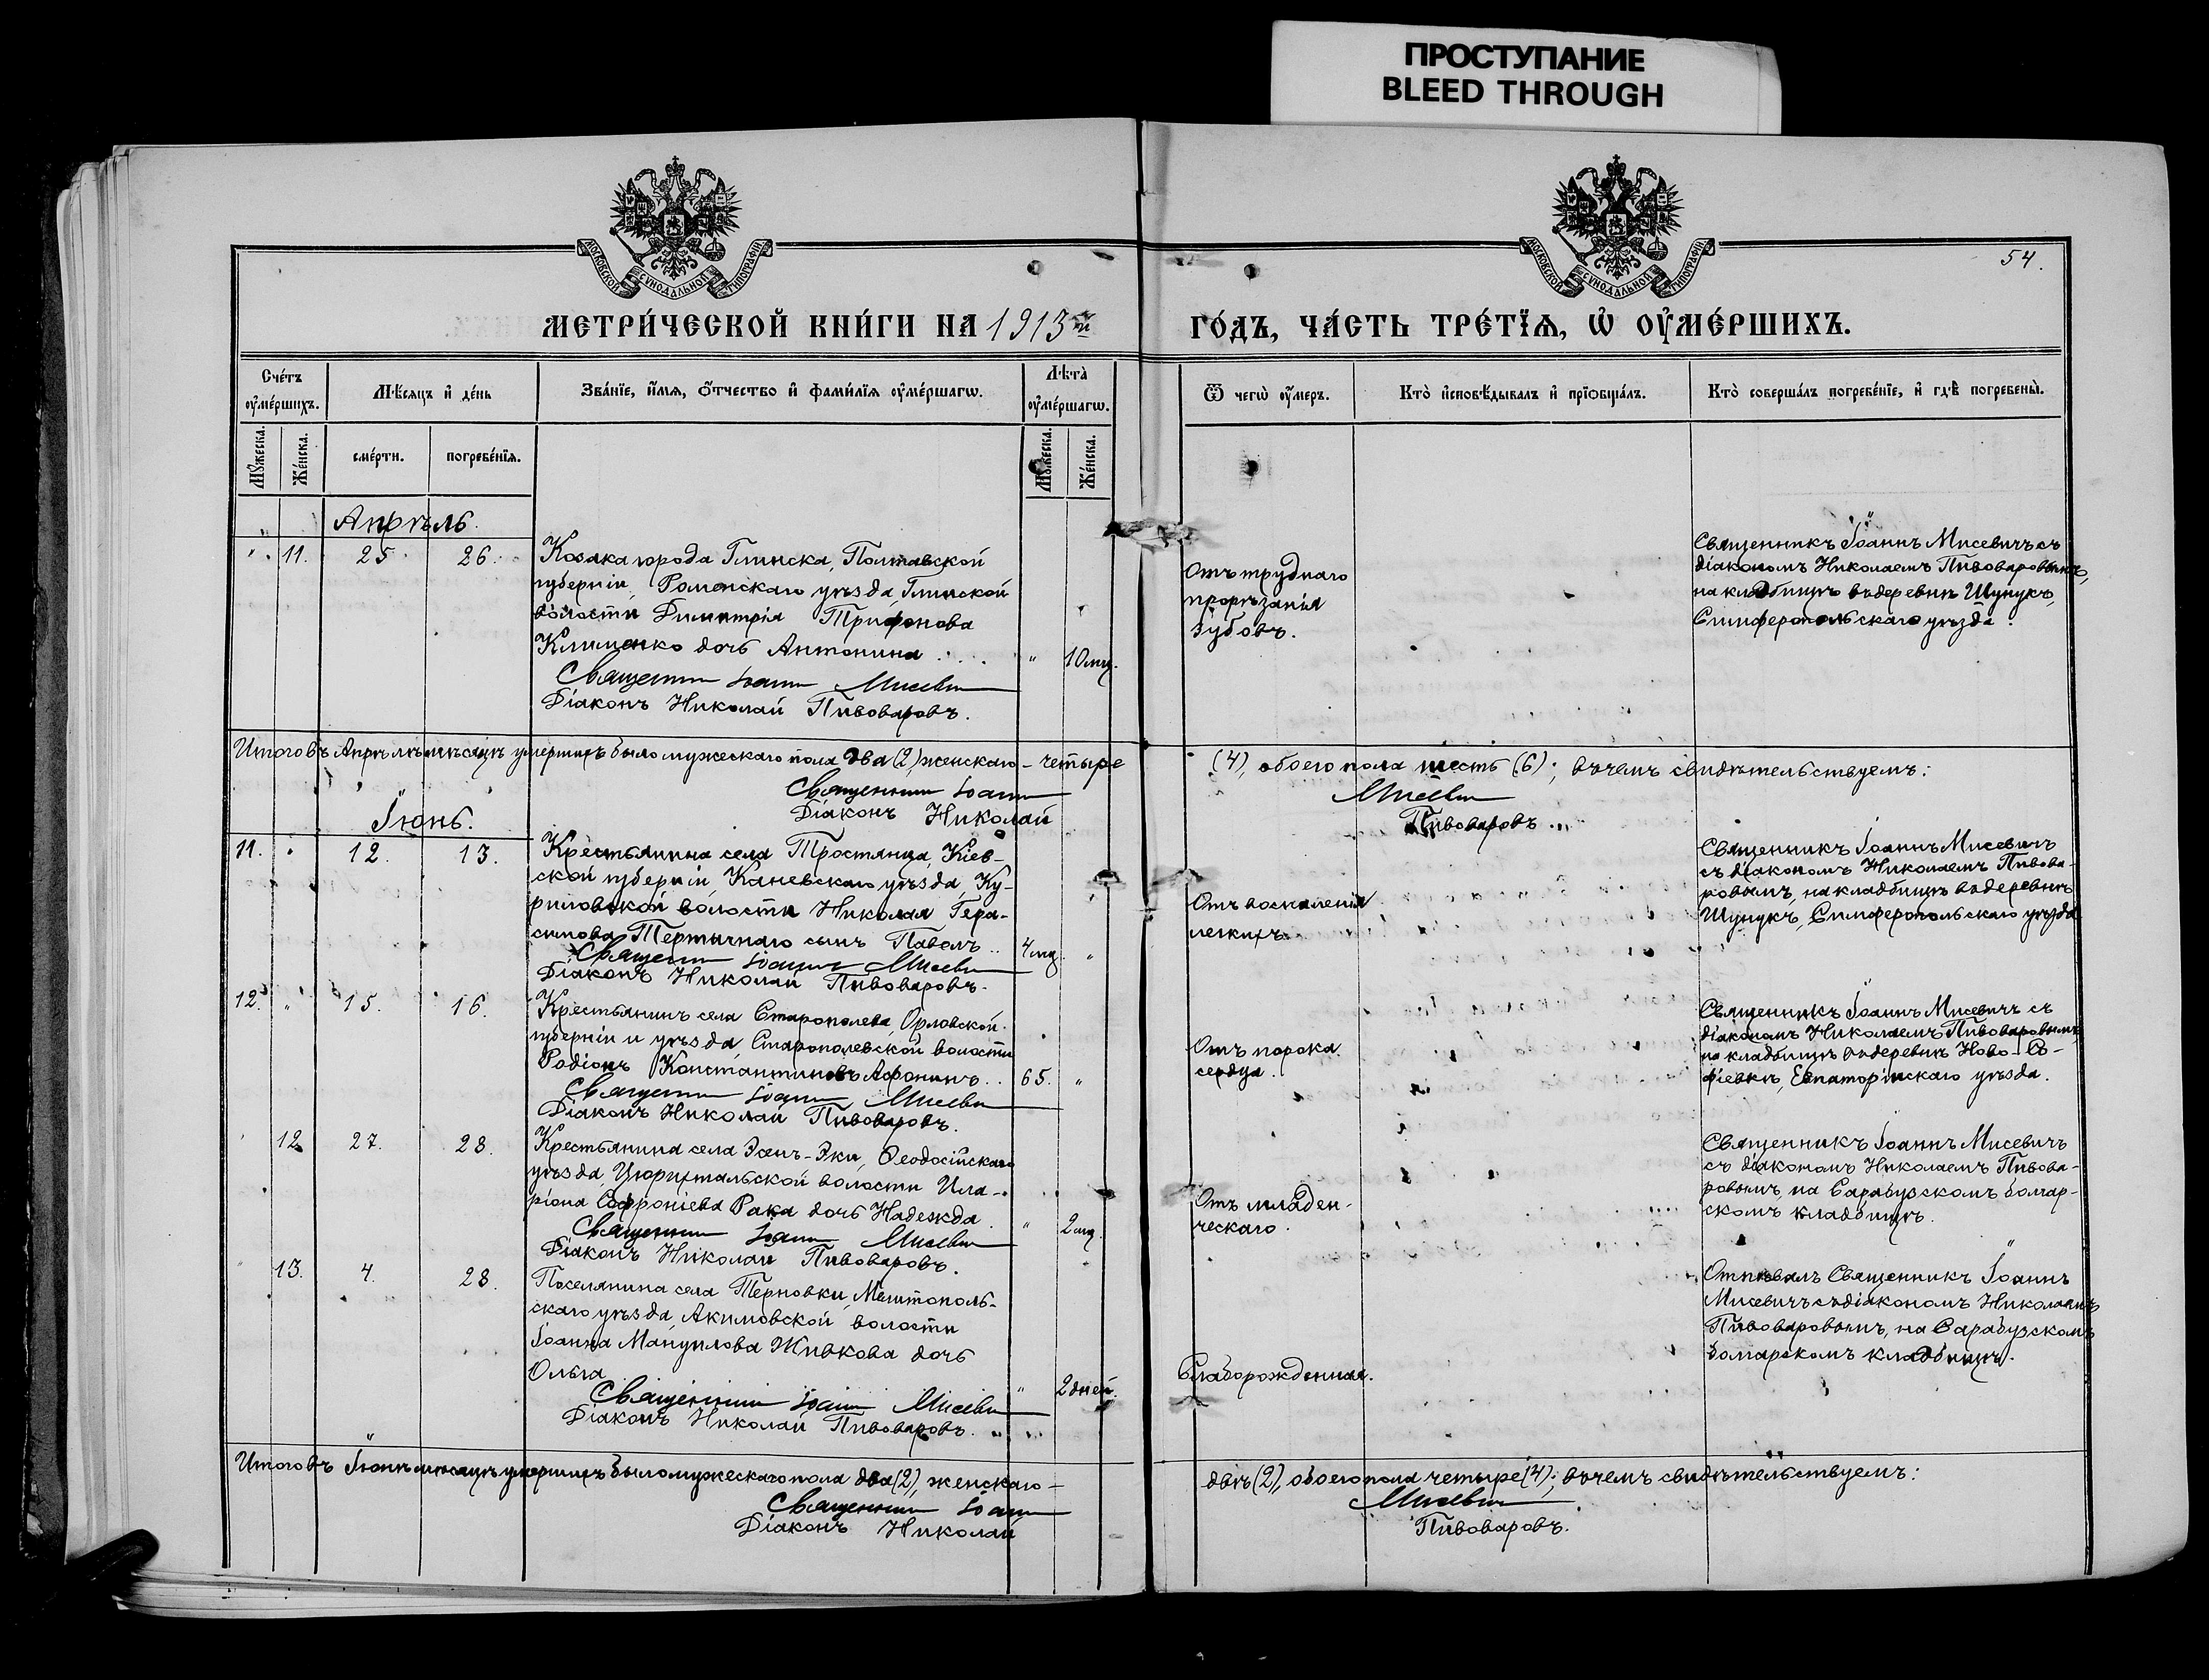 ПРОСТУПАНИЕ
BLEED THROUGH
МОСКОВСКОЙ СѴНОДАЛЬНОЙ ТИПОГРАФІИ
МОСКОВСКОЙ СѴНОДАЛЬНОЙ ТИПОГРАФІИ
54.
МЕТРИ́ЧЕСКОЙ КНИ́ГИ НА 1913й
ГО́ДЪ, ЧА́СТЬ ТРЕ́ТЇѦ, Ѡ҆ ОУ҆МЕ́РШИХЪ.
Сче́тъ оу҆ме́ршихъ.
Мѣ́сяцъ и҆ де́нь
Зва́нїе, и҆́мя, ѻ҆́тчество и҆ фами́лїя оу҆ме́ршагѡ.
Лѣ́та оу҆ме́ршагѡ.
Ѿ чегѡ̀ оу҆́меръ.
Кто̀ и҆сповѣ́дывалъ и҆ прїѡбща́лъ.
Кто̀ соверша́лъ погребе́нїе, и҆ гдѣ̀ погребены̀.
Мꙋ́жеска.
Же́нска.
сме́рти.
погребе́нїя.
Мꙋ́жеска.
Же́нска.
Апрѣль.
" 11. 25 26.
Козака города Глинска, Полтавской
губерніи, Роменскаго уѣзда, Глинской
волости Димитрія Трифонова
Клименко дочь Антонина
" 10 мц.
Священник Іоанн Мисевич
Діаконъ Николай Пивоваровъ.
Отъ труднаго
прорѣзанія
зубовъ.
Священникъ Іоаннъ Мисевичъ съ
діакономъ Николаемъ Пивоваровымъ,
на кладбищѣ въ деревнѣ Шунукъ,
Симферопольскаго уѣзда.
Итого въ Апрѣлѣ мѣсяцѣ умершихъ было мужескаго пола два (2), женскаго – четыре
(4), обоего пола шесть (6); въ чемъ свидѣтельствуемъ:
Священник Іоанн Мисевич
Діаконъ Николай Пивоваровъ.
Іюнь.
11. " 12. 13.
Крестьянина села Тростянца, Кіев-
ской губерніи, Каневскаго уѣзда, Ку-
риловской волости Николая Гера-
симова Тертычнаго сынъ Павелъ
4 мц. "
Священник Іоанн Мисевич
Діаконъ Николай Пивоваровъ.
Отъ воспаленія
легкихъ
Священникъ Іоаннъ Мисевичъ
съ діакономъ Николаемъ Пивова-
ровымъ, на кладбищѣ въ деревнѣ
Шунукъ, Симферопольскаго уѣзда
12. " 15. 16.
Крестьянинъ села Старополева, Орловской
губерніи и уѣзда, Старополевской волости
Родіонъ Константиновъ Афонинъ
65. "
Священник Іоанн Мисевич
Діаконъ Николай Пивоваровъ.
Отъ порока
сердца.
Священникъ Іоаннъ Мисевичъ съ
діакономъ Николаемъ Пивоваровымъ,
на кладбищѣ въ деревнѣ Ново-Со-
фіевкѣ, Евпаторійскаго уѣзда.
" 12 27. 28.
Крестьянина села Эсенъ-Эки, Ѳеодосійскаго
уѣзда, Цюрихтальской волости Ила-
ріона Софроніева Рака дочь Надежда
" 2 мц.
Священник Іоанн Мисевич
Діаконъ Николай Пивоваровъ.
Отъ младен-
ческаго.
Священникъ Іоаннъ Мисевичъ
съ діакономъ Николаемъ Пивова-
ровымъ на Сарабузскомъ болгар-
скомъ кладбищѣ.
" 13. 4. 28.
Поселянина села Терновки, Мелитополь-
скаго уѣзда, Акимовской волости
Іоанна Мануилова Живкова дочь
Ольга
" 2 дней.
Священник Іоанн Мисевич
Діаконъ Николай Пивоваровъ.
Слаборожденная.
Отпѣвалъ Священникъ Іоаннъ
Мисевичъ съ діакономъ Николаемъ
Пивоваровымъ, на Сарабузскомъ
болгарскомъ кладбищѣ.
Итого въ Іюнѣ мѣсяцѣ умершихъ было мужескаго пола два (2), женскаго –
двѣ (2), обоего пола четыре (4); въ чемъ свидѣтельствуемъ:
Священник Іоанн Мисевич
Діаконъ Николай Пивоваровъ.